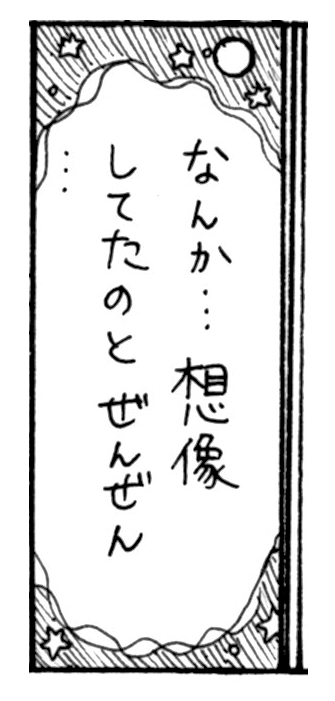 なんか…想像
してたのとぜんぜん
…